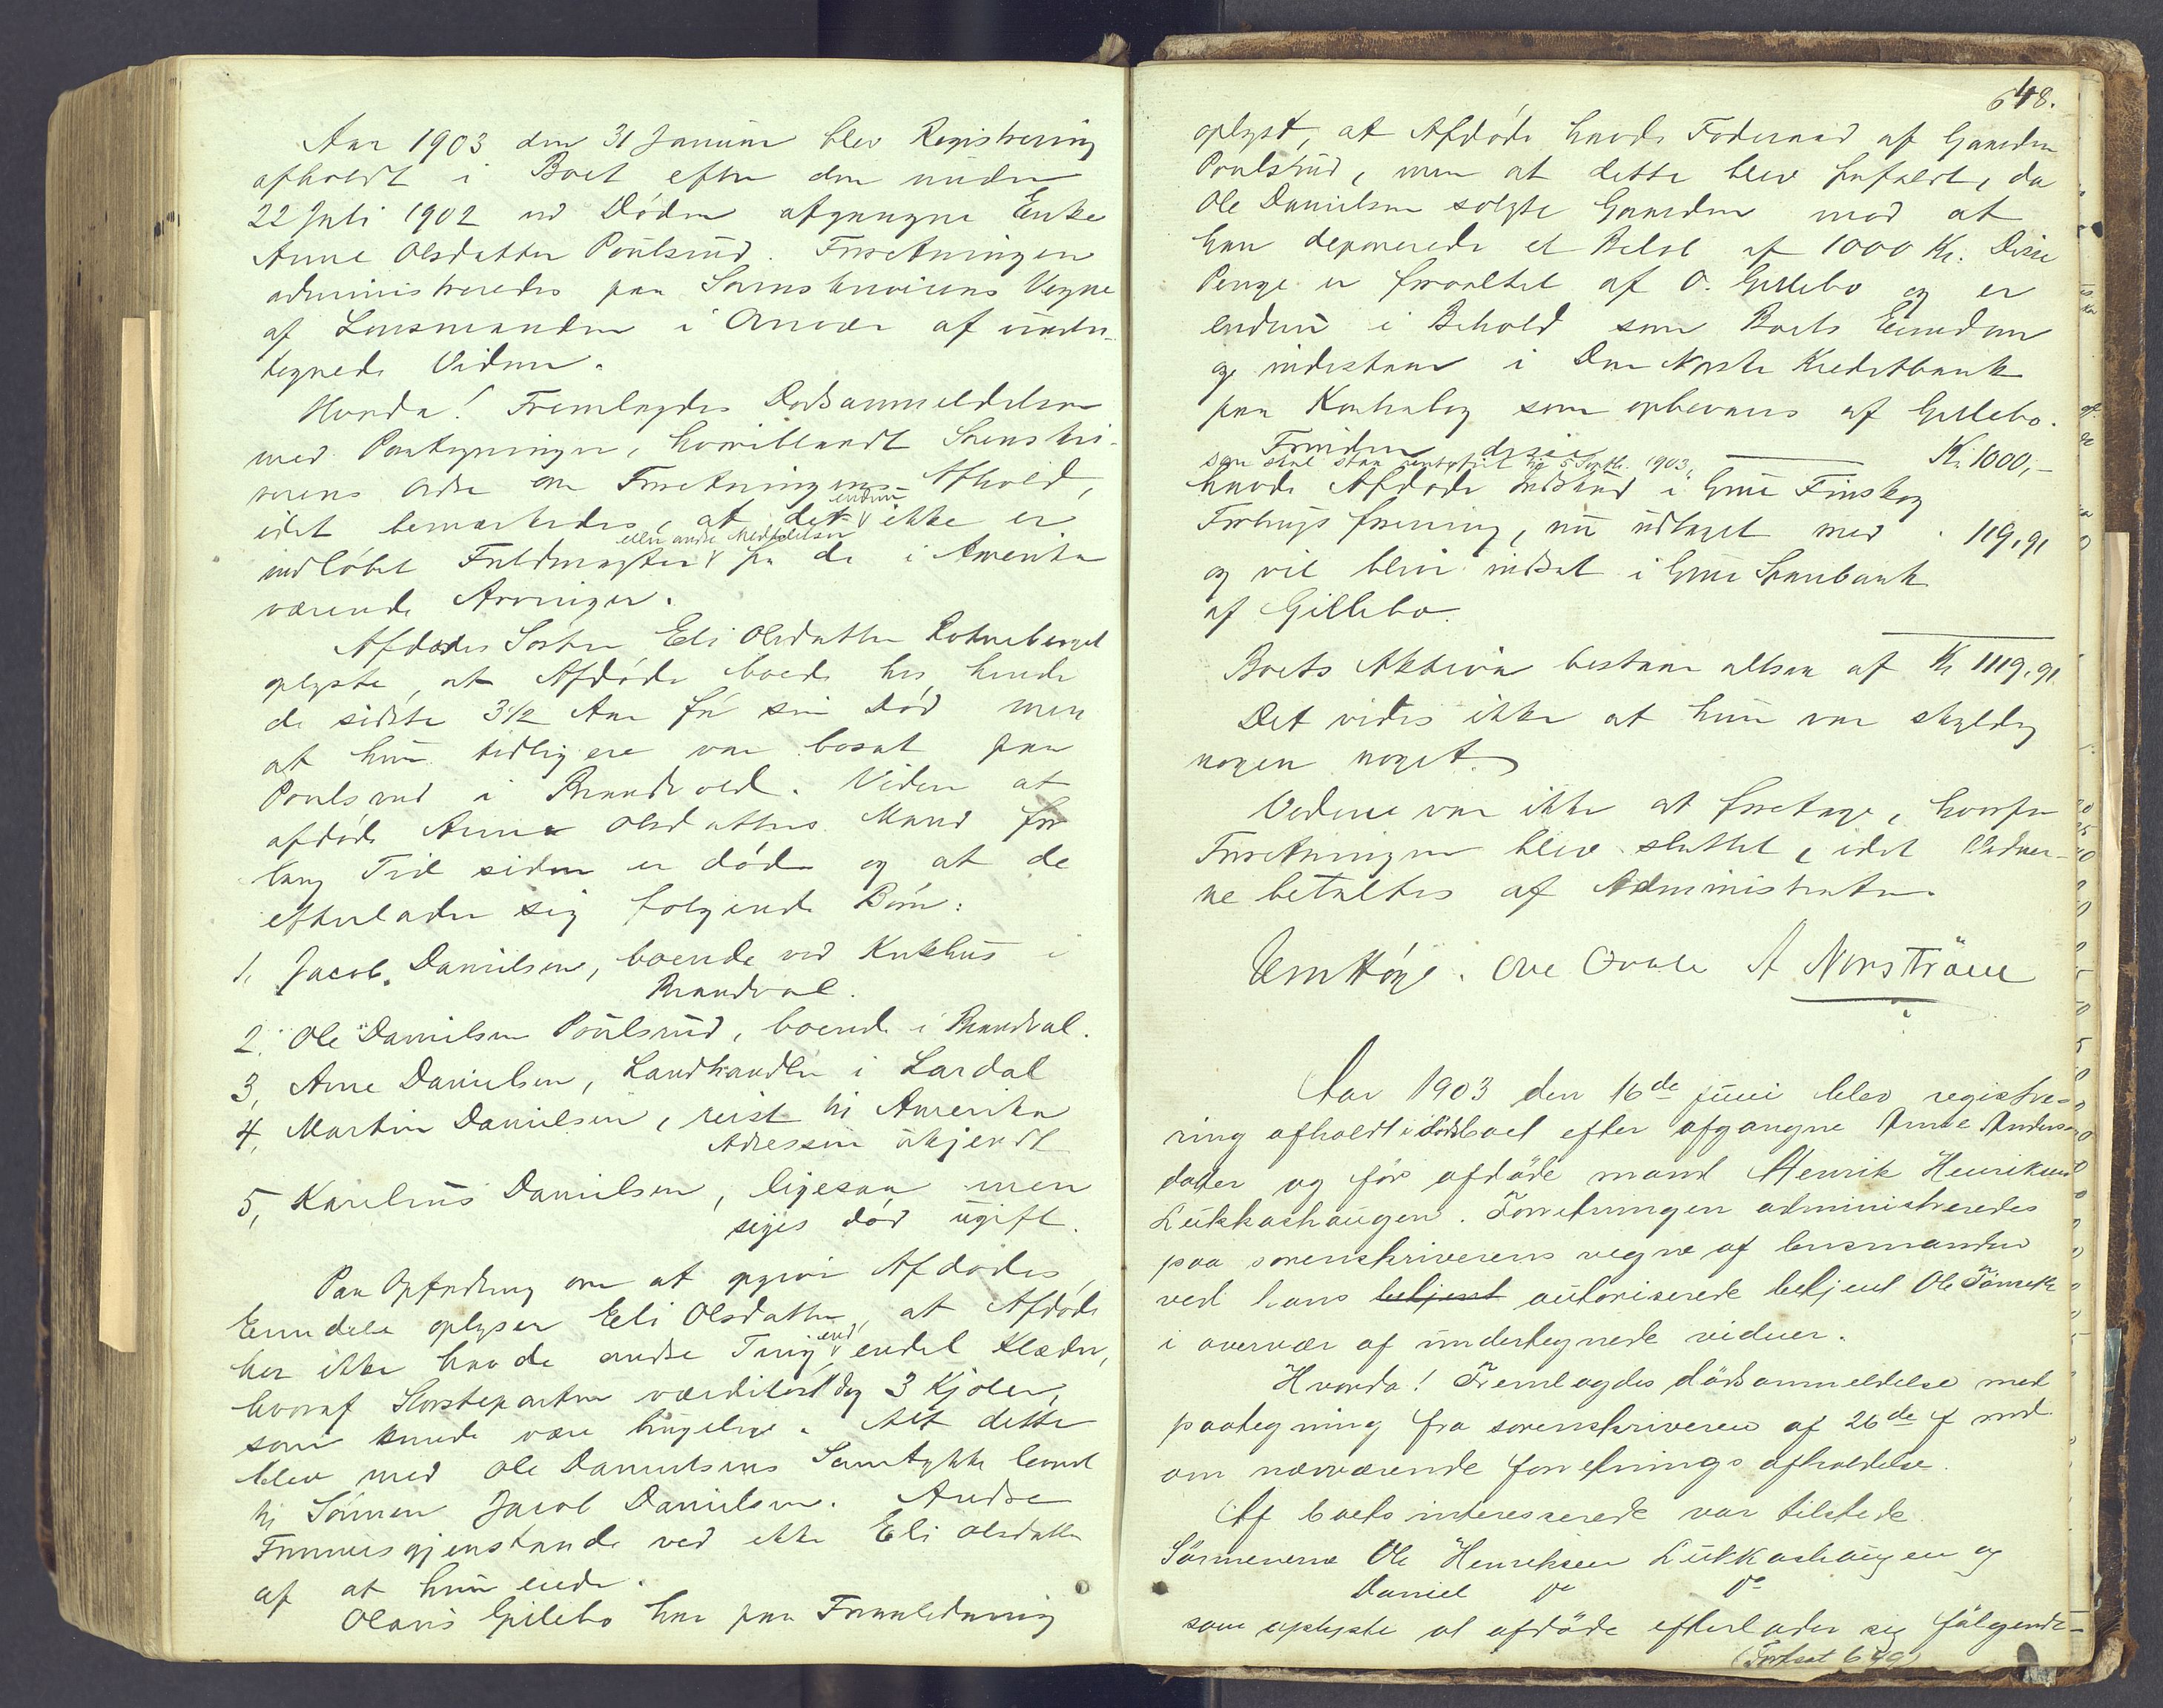 Aar 1903 den 31 Januar blev Registrering
afholdt i Boet efter den under
22 Juli 1902 ved Døden afgangne Enke
Anne Olsdatter Poulsrud. Forretningen
administreredes paa Sorenskriverens Vegne
af Lensmanden i Overvær af under-
tegnede Vidner.
Hvorda! Fremlagdes Dødsanmeldelsen
med Paategninger, hvoriblandt Sorenskri-
verens Ordre om Forretningens Afhold,
idet bemærkedes, at det endnu ikke er
indløbet Fuldmagter eller andre Meddelelser fra de i Amerika
værende Arvinger.
Afdødes Søster Eli Olsdatter Rotneberget
oplyste, at Afdøde boede hos hende
de sidste 3½ Aar før sin Død men
at hun tidligere var bosat paa
Poulsrud i Brandvold. Viden at
afdøde Anne Olsdatters Mand for
lang Tid siden er død og at de
efterlader sig følgende Børn:
1, Jacob Danielsen, boende ved Kirkhus i
Brandval.
2. Ole Danielsen Poulsrud, boende i Brandval.
3, Arne Danielsen, Landhandler i Lardal
4, Martin Danielsen, reist til Amerika
Adressen ukjendt
5, Karelius Danielsen, ligesaa men
siges død ugift.
Paa Opfordring om at opgive Afdødes
Eiendele oplyser Eli Olsdatter, at Afdøde
her ikke havde andre Ting end endel Klæder,
hvoraf Størsteparten værdiløst dog 3 Kjoler,
som kunde være brugelige. Alt dette
blev med Ole Danielsens Samtykke levert
til Sønnen Jacob Danielsen. Andre
Formuesgjenstande ved ikke Eli Olsdatter
af at hun eiede.
Olavus Gillebo har paa Foranledning
648.
oplyst, at Afdøde havde Føderaad af Gaarden
Poulsrud, men at dette blev frafaldt, da
Ole Danielsen solgte Gaarden mod at
han deponerede et Beløb af 1000 Kr. Disse
Penge er forvaltet af O. Gillebo og er
endnu i Behold som Boets Eiendom
og indestaar i Den Norske Kreditbank
paa Kontrabog som opbevares af Gillebo.
som skal staa rentefrit til 5 Septbr. 1903, Kr. 1000,-
Foruden disse
havde Afdøde indskud i Grue Finskog
Forbrugsforening, nu udtaget med . 119,91
og vil blive indsat i Grue Sparebank
af Gillebo.
Boets Aktiva bestaar altsaa af Kr 1119,91
Det vides ikke at hun var skyldig
nogen noget.
Videre var ikke at foretage, hvorfor
Forretningen blev sluttet, idet Vidner-
ne betaltes af Administrator.
A Norström
Aar 1903 den 16de juni blev registre-
ring afholdt i dødsboet efter afgangne Anne Anders-
datter og før afdøde mand Henrik Henriksen
Lukkashaugen. Forretningen administreredes
paa sorenskriverens vegne af lensmanden
ved hans betjent autoriserede betjent Ole
i overvær af undertegnede vidner.
Hvorda! Fremlagdes dødsanmeldelse med
paategning fra sorenskriveren af 26de f md
om nærværende forretnings afholdelse.
Af boets interesserede var tilstede
Sønnerne Ole Henriksen Lukkashaugen og
Daniel do do
som oplyste at afdøde efterlader sig følgende-
(Fortsat 649)